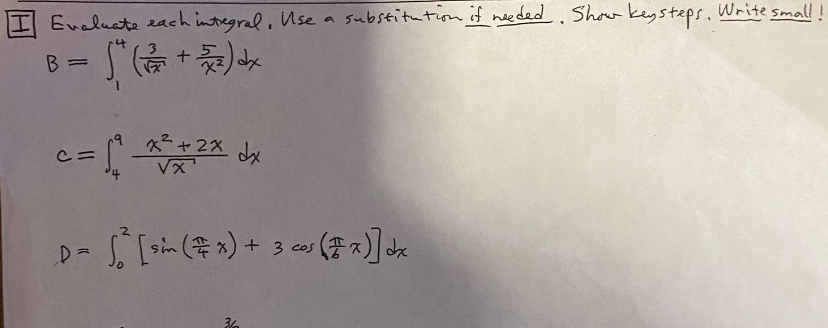 I Evaluate each integral. Use a substitution if needed. Show key steps. Write small!
B = ∫₁⁴ (3/√x + 5/x²) dx
C = ∫₄⁹ (x² + 2x)/√x dx
D = ∫₀² [sin(π/4 x) + 3 cos(π/6 x)] dx